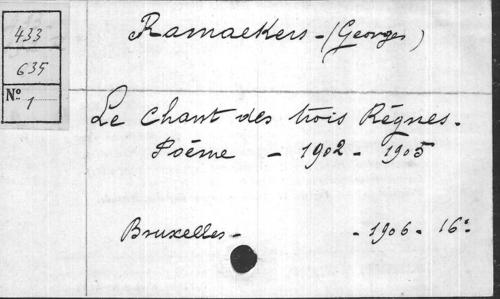 433
635
Nº 1
Ramaekers - (Georges)
Le Chant des trois Règnes.
Poème - 1902 - 1905
Bruxelles - - 1906 - 16º